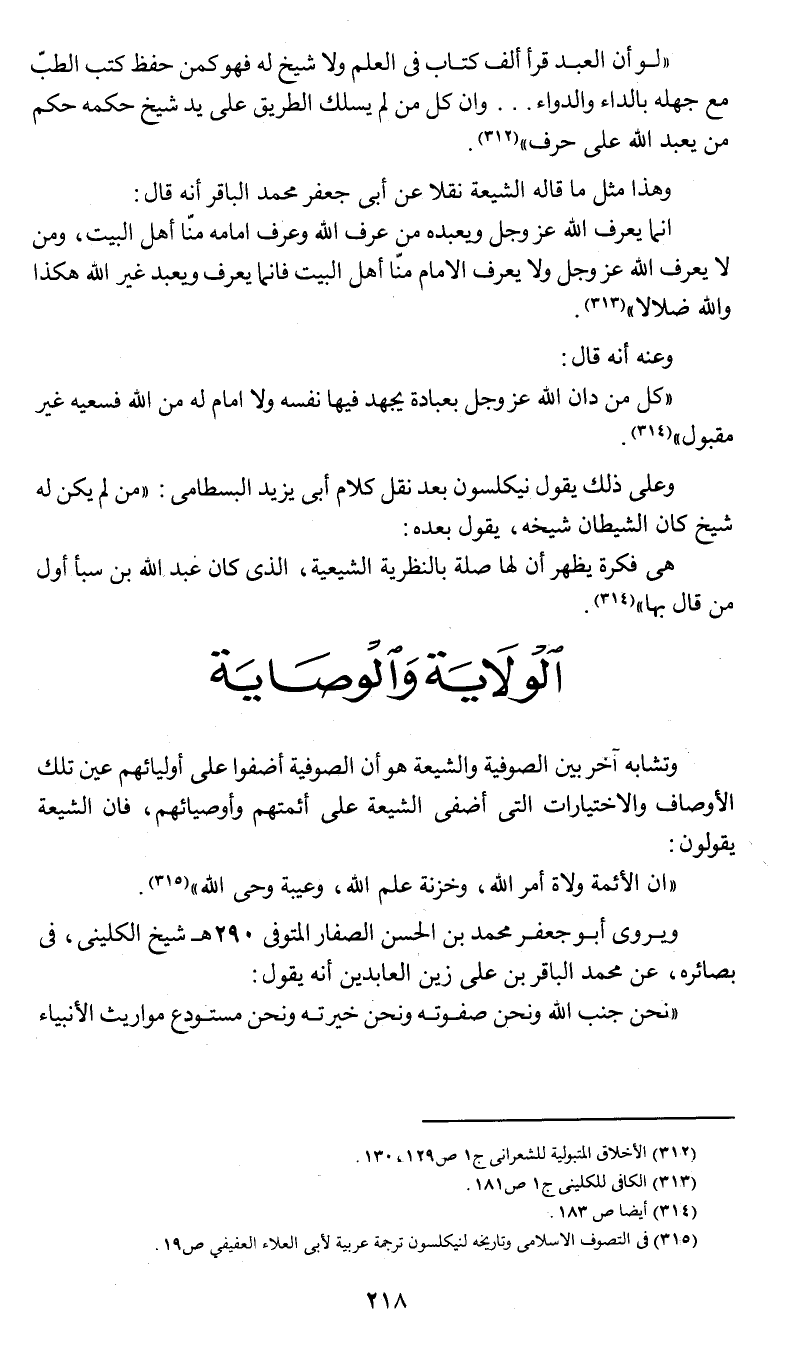 «لو أن العبد قرأ ألف كتاب فى العلم ولا شيخ له فهو كمن حفظ كتب الطبّ
مع جهله بالداء والدواء . . . وان كل من لم يسلك الطريق على يد شيخ حكمه حكم
من يعبد الله على حرف»(٣١٢) .
وهذا مثل ما قاله الشيعة نقلا عن أبى جعفر محمد الباقر أنه قال :
انما يعرف الله عز وجل ويعبده من عرف الله وعرف امامه منّا أهل البيت ، ومن
لا يعرف الله عز وجل ولا يعرف الامام منّا أهل البيت فانما يعرف ويعبد غير الله هكذا
والله ضلالا»(٣١٣) .
وعنه أنه قال :
«كل من دان الله عز وجل بعبادة يجهد فيها نفسه ولا امام له من الله فسعيه غير
مقبول»(٣١٤) .
وعلى ذلك يقول نيكلسون بعد نقل كلام أبى يزيد البسطامى : «من لم يكن له
شيخ كان الشيطان شيخه ، يقول بعده :
هى فكرة يظهر أن لها صلة بالنظرية الشيعية ، الذى كان عبد الله بن سبأ أول
من قال بها»(٣١٤) .
اَلْوِلَايَة وَالْوصَايَة
وتشابه آخر بين الصوفية والشيعة هو أن الصوفية أضفوا على أوليائهم عين تلك
الأوصاف والاختيارات التى أضفى الشيعة على أئمتهم وأوصيائهم ، فان الشيعة
يقولون :
«ان الأئمة ولاة أمر الله ، وخزنة علم الله ، وعيبة وحى الله»(٣١٥) .
ويروى أبو جعفر محمد بن الحسن الصفار المتوفى ٢٩٠هـ شيخ الكلينى ، فى
بصائره ، عن محمد الباقر بن على زين العابدين أنه يقول :
«نحن جنب الله ونحن صفوته ونحن خيرته ونحن مستودع مواريث الأنبياء
(٣١٢) الأخلاق المتبولية للشعرانى ج١ ص١٢٩ ، ١٣٠ .
(٣١٣) الكافى للكلينى ج١ ص١٨١ .
(٣١٤) أيضا ص ١٨٣ .
(٣١٥) فى التصوف الاسلامى وتاريخه لنيكلسون ترجمة عربية لأبى العلاء العفيفي ص١٩ .
٢١٨